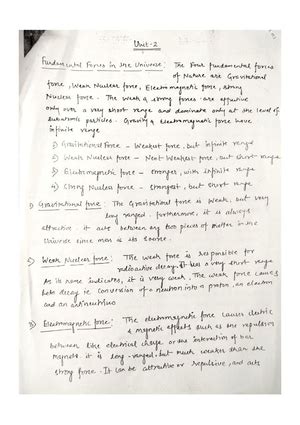 Unit-2
Fundamental Forces in the Universe: The Four fundamental forces
of Nature are Gravitational
force, Weak Nuclear force, Electromagnetic force, strong
Nuclear force. The weak & strong forces are effective
only over a very short range and dominate only at the level of
subatomic particles. Gravity & Electromagnetic force have
infinite range
1) Gravitational Force - Weakest force, but infinite range
2) Weak Nuclear force - Next Weakest force, but short range
3) Electromagnetic force - stronger, with infinite range
4) Strong Nuclear force - strongest, but short range
1) Gravitational force: The Gravitational force is weak, but very
long ranged. furthermore, it is always
attractive. it acts between any two pieces of matter in the
Universe since mass is its source.
2) Weak Nuclear force: The weak force is responsible for
radioactive decay. It has a very short range
As its name indicates, it is very weak. The weak force causes
Beta decay ie conversion of a neutron into a proton, an electron
and an antineutrino
3) Electromagnetic force: The electromagnetic force causes electric
& magnetic effects such as the repulsion
between like electrical charge or the interaction of bar
magnets. it is long-ranged, but much weaker than the
strong force. It can be attractive or repulsive, and acts